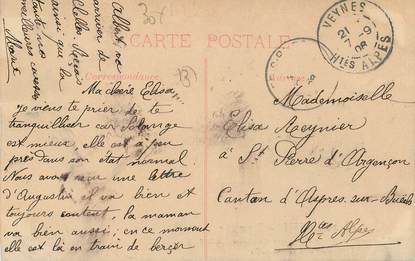 CARTE POSTALE
Correspondance
Adresse
Ma chère Elisa,
Je viens te prier de te
tranquilliser car Solange
est mieux, elle est à peu
près dans son état normal.
Nous avons reçu une lettre
d'Augustin il va bien et
toujours content, la maman
va bien aussi; en ce moment
elle est là en train de berçer
Albert
arriver de
ainsi que la
meilleures caresses
VEYNES
21 - 9
08
Htes ALPES
Mademoiselle
Elisa Reynier
à St Pierre d'Argençon
Canton d'Aspres-sur-Buëch
Htes Alpes